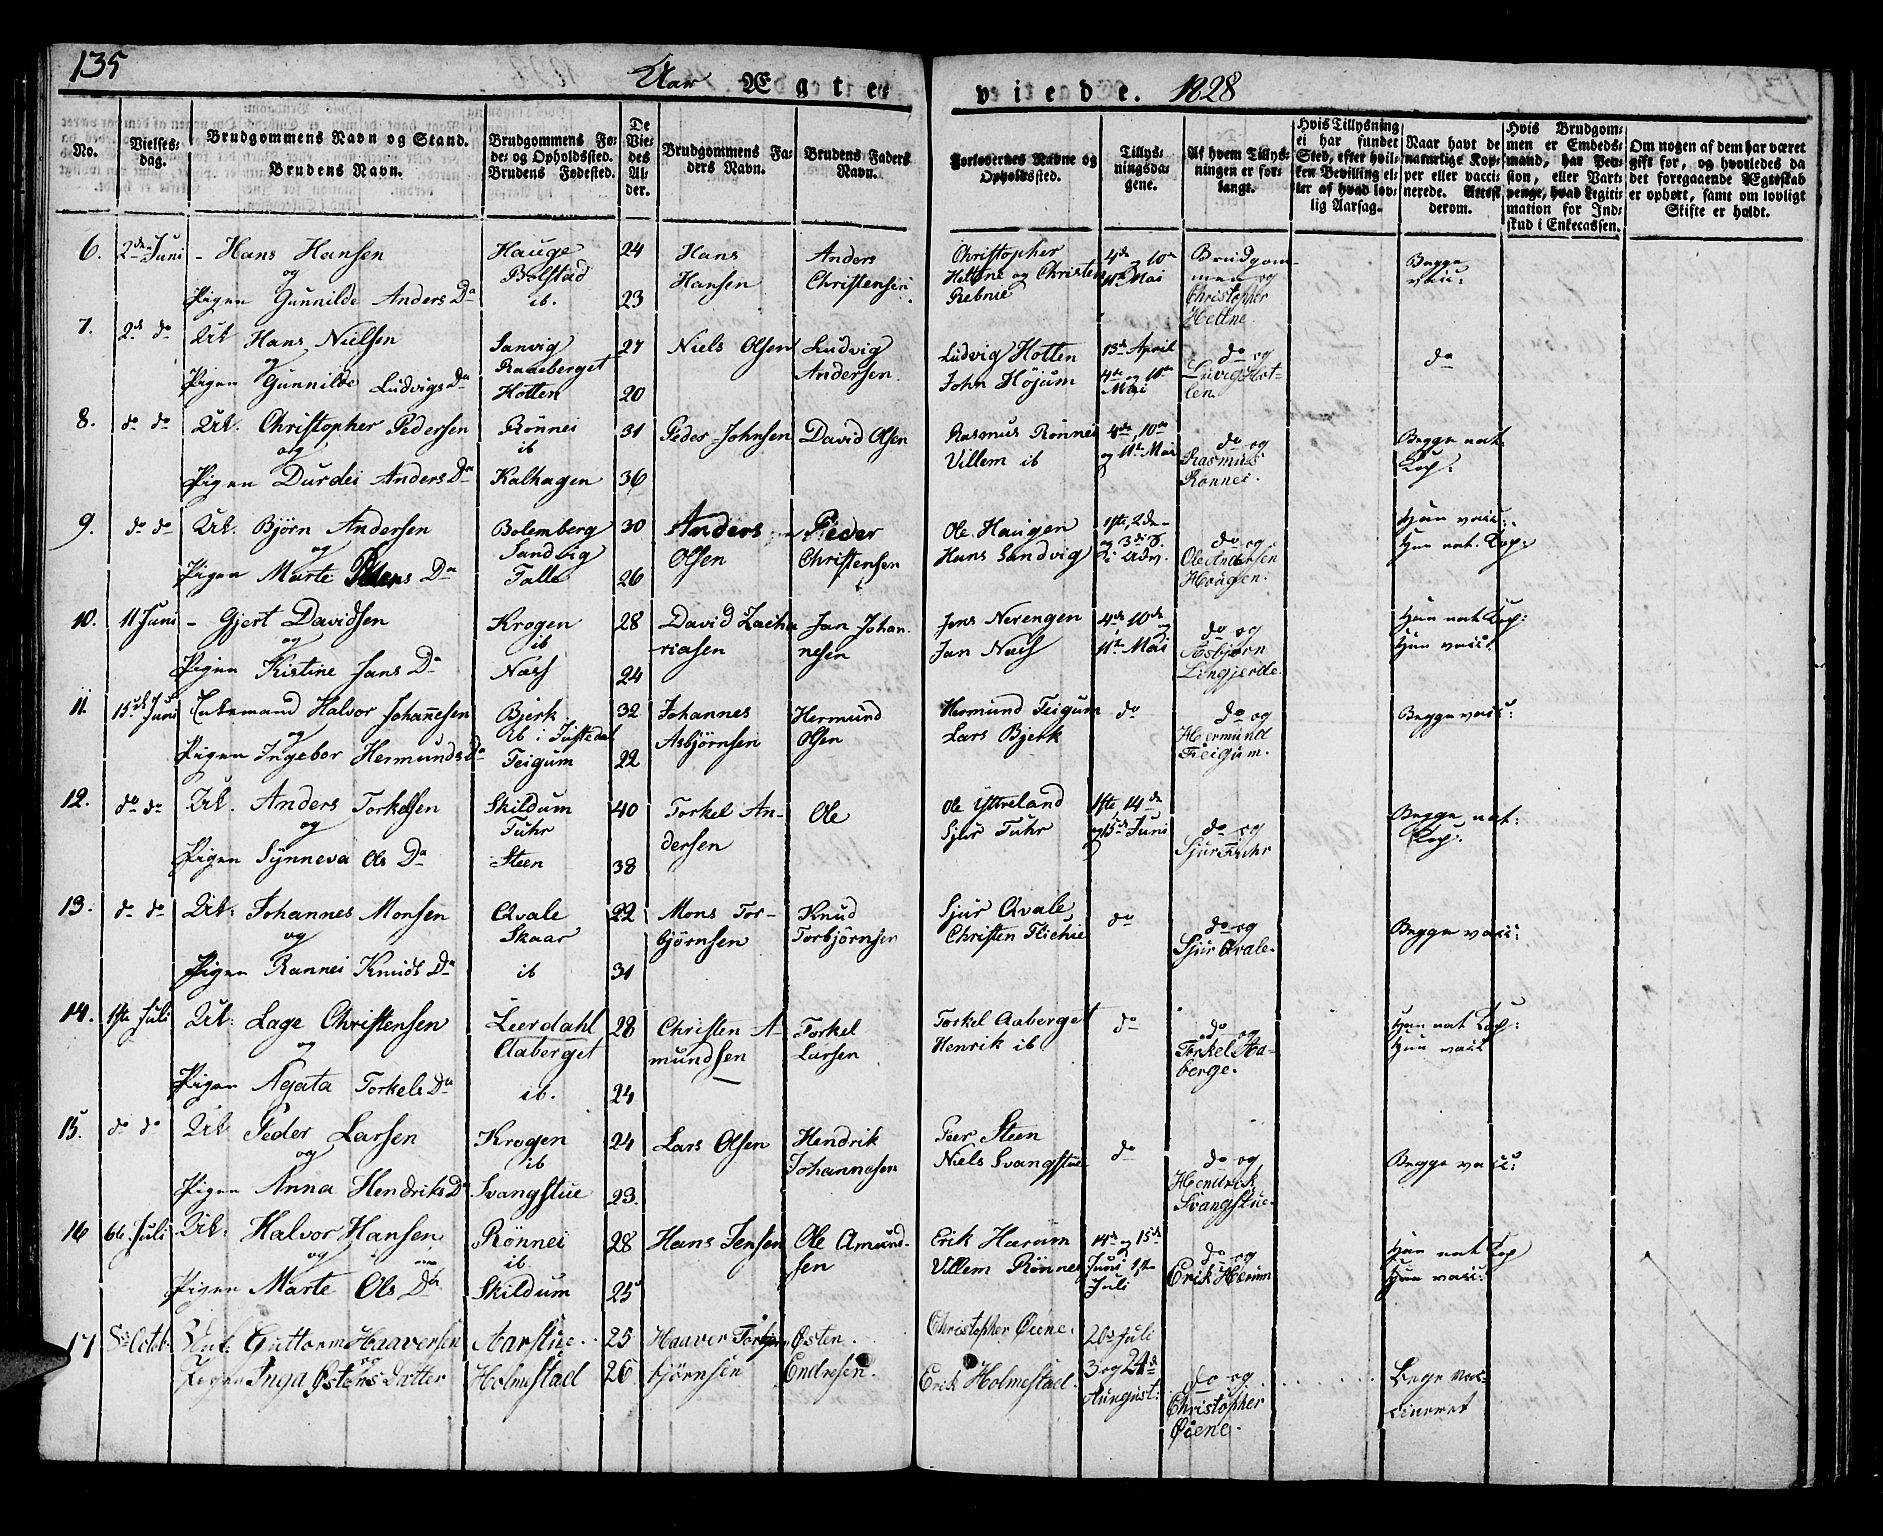 135
Aar Ægte-
viede. 1828
No.
Vielses-
dag.
Brudgommens Navn og Stand.
Brudens Navn.
Brudgommens Fø-
de- og Opholdssted.
Brudens Fødested.
De
Vie-
des
Al-
der.
Brudgommens Fa-
ders Navn.
Brudens Faders
Navn.
Forlovernes Navne og
Opholdssted.
Tillys-
ningsda-
gene.
Af hvem Tillys-
ningen er for-
langt.
Hvis Tillysning
ei har fundet
Sted, efter hvil-
ken Bevilling el-
ler af hvad lov-
lig Aarsag.
Naar havt de
naturlige Kop-
per eller vacci-
nerede. Attest
derom.
Hvis Brudgom-
men er Embeds-
mand, har Pen-
sion, eller Vart-
penge, hvad Legiti-
mation for Ind-
skud i Enkecassen.
Om nogen af dem har været
gift før, og hvorledes da
det foregaaende Ægteskab
er ophørt, samt om lovligt
Skifte er holdt.
6. 2den Juni - Hans Hansen
og
Pigen Gunnilde Anders Da
Hauge
Bolstad
ib.
24
23
Hans
Hansen
Anders
Christensen
Christopher
Hettne og Christen
Rebnie
4de og 10de
11te Mai
Brudgom-
men og
Christopher
Hettne
Begge
vacc:
7. 2de do Uk Hans Nielsen
og
Pigen Gunnilde Ludvigs Da
Sanvig
Raaeberget
Hotten
27
20
Niels Olsen
Ludvig
Andersen
Ludvig Hotten
John Höjum
13de April
4de og 10de
Mai
do og
Ludvig Hot-
ten
do
8. do do Uk. Christopher Pedersen
og
Pigen Durdei Anders Da
Rönnei
ib
Kalhagen
31
36
Peder Johnsen
David Olsen
Rasmus Rönnei
Villem ib
4de, 10de
og 11te Mai
do og
Rasmus
Rönnei.
Begge nat.
Kop:
9. do do Uk. Björn Andersen
og
Pigen Marte Peders Da
Bolemberg
Sandvig
Talle
30
26
Anders
Olsen
Peder
Christensen
Ole Haugen
Hans Sandvig
1ste, 2de
og 3die S.
i Adv.
do og
Ole Andersen
Haugen.
Han vacc:
Hun nat. Kop:
10. 11 Juni - Gjert Davidsen
og
Pigen Kistine Jans Da
Krogen
ib
Næss
28
24
David Zacha
riasen
Jan Johan-
nesen
Jens Nerengen
Jan Næss
4de 10de og
11te Mai
do og
Asbjørn
Lingjerde.
Han nat Kop:
Hun vacc.
11. 15de Juni Enkemand Halvor Johannesen
og
Pigen Ingebor Hermunds Da
Bjerk
ib i Justedal
Teigum
32
22
Johannes
Asbjörnsen
Hermund
Olsen
Hermund Teigum
Lars Bjerk
do
do og
Hermund
Teigum.
Begge vacc:
12. do do Uk. Anders Torkelsen
og
Pigen Synneva Ols Da
Skildum
Fuhr
Steen
40
38
Torkel An-
dersen
Ole
Ole Ytreland
Sjur Fuhr
1ste 14de
og 15de Juni
do og
Sjur Fuhr
Begge nat:
Kop:
13. do do Uk: Johannes Monsen
og
Pigen Rannei Knuds Da
Qvale
Skaar
ib
22
31
Mons Tor-
björnsen
Knud
Torbjörnsen
Sjur Qvale
Christen Flichie
do
do og
Sjur Qvale.
Begge vacc:
14. 1ste Juli Uk: Lage Christensen
og
Pigen Agata Torkels Da
Leerdahl
Aaberget
ib.
28
24
Christen A-
mundsen
Torkel
Larsen
Torkel Aaberget
Henrik ib
do
do og
Torkel Aa-
berge.
Han nat Kop:
Hun vacc
15. do do Uk Peder Larsen
og
Pigen Anna Hendriks Da
Krogen
ib
Svangstue
24
23.
Lars Olsen
Hendrik
Johannesen
Peer Steen
Niels Svangstue
do
do og
Hendrik
Svangstue.
Begge vacc:
16 6te Juli Uk: Halvor Hansen
og
Pigen Marte Ols Da
Rönnei
ib.
Skildum
28
25
Hans Jensen
Ole Amund-
sen
Erik Harum
Villem Rönnei
14de og 15de
Juni 1ste
Juli
do og
Erik Harum
Han nat Kop
Hun vacc:
17 5te Octob: Unk: Guttorm Haaversen
og
Pigen Inga Østens Datter
Aarstue.
Holmestad
25
26
Haaver Torbjörn
björnsen
Østen
Endresen.
Christopher Øiene.
Erik Holmestad.
20de Juli
3 og 24de
Aungust:
do og
Christopher
Øiene.
Bege vac-
cineret